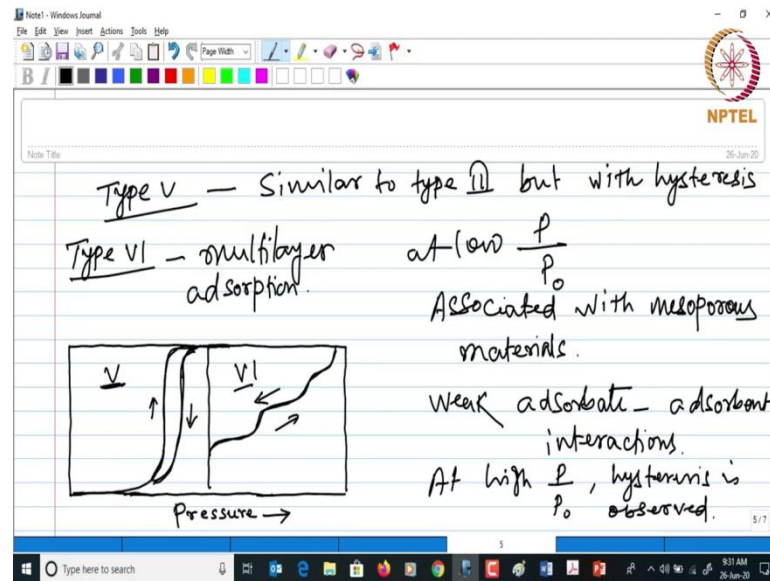 Note1 - Windows Journal
File Edit View Insert Actions Tools Help
Page Width
B I
NPTEL
Note Title
26-Jun-20
Type V - Similar to type II but with hysteresis
Type VI - multilayer adsorption.
at low P/P₀
Associated with mesoporous
materials.
Weak adsorbate - adsorbent
interactions.
At high P/P₀, hysterisis is
observed.
V
VI
Pressure →
5/7
5
Type here to search
9:31 AM
26-Jun-20